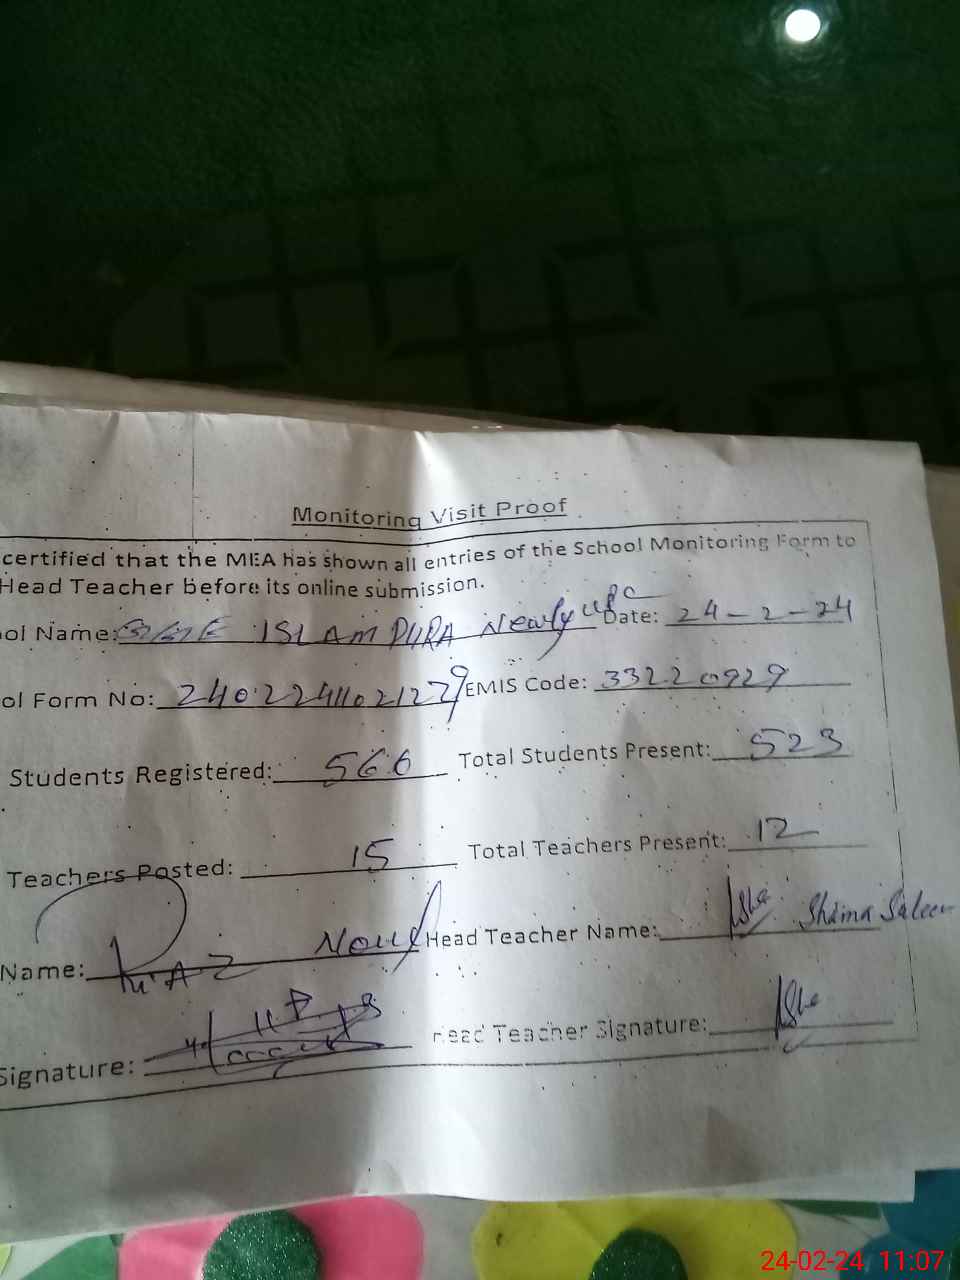 Monitoring Visit Proof
certified that the MEA has shown all entries of the School Monitoring Form to
Head Teacher before its online submission.
ol Name: ISLAM PURA Newly Date: 24-2-24
ol Form No: EMIS Code: 33220929
Students Registered: 566 Total Students Present: 523
Teachers Posted: 15 Total Teachers Present: 12
Name: Head Teacher Name: Shama Saleem
Signature: Head Teacher Signature:
24-02-24, 11:07